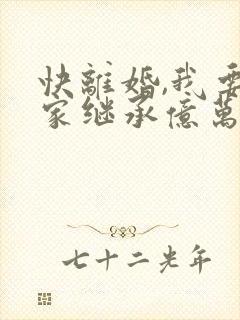 快離婚,我要
家继承億萬
七十二光年